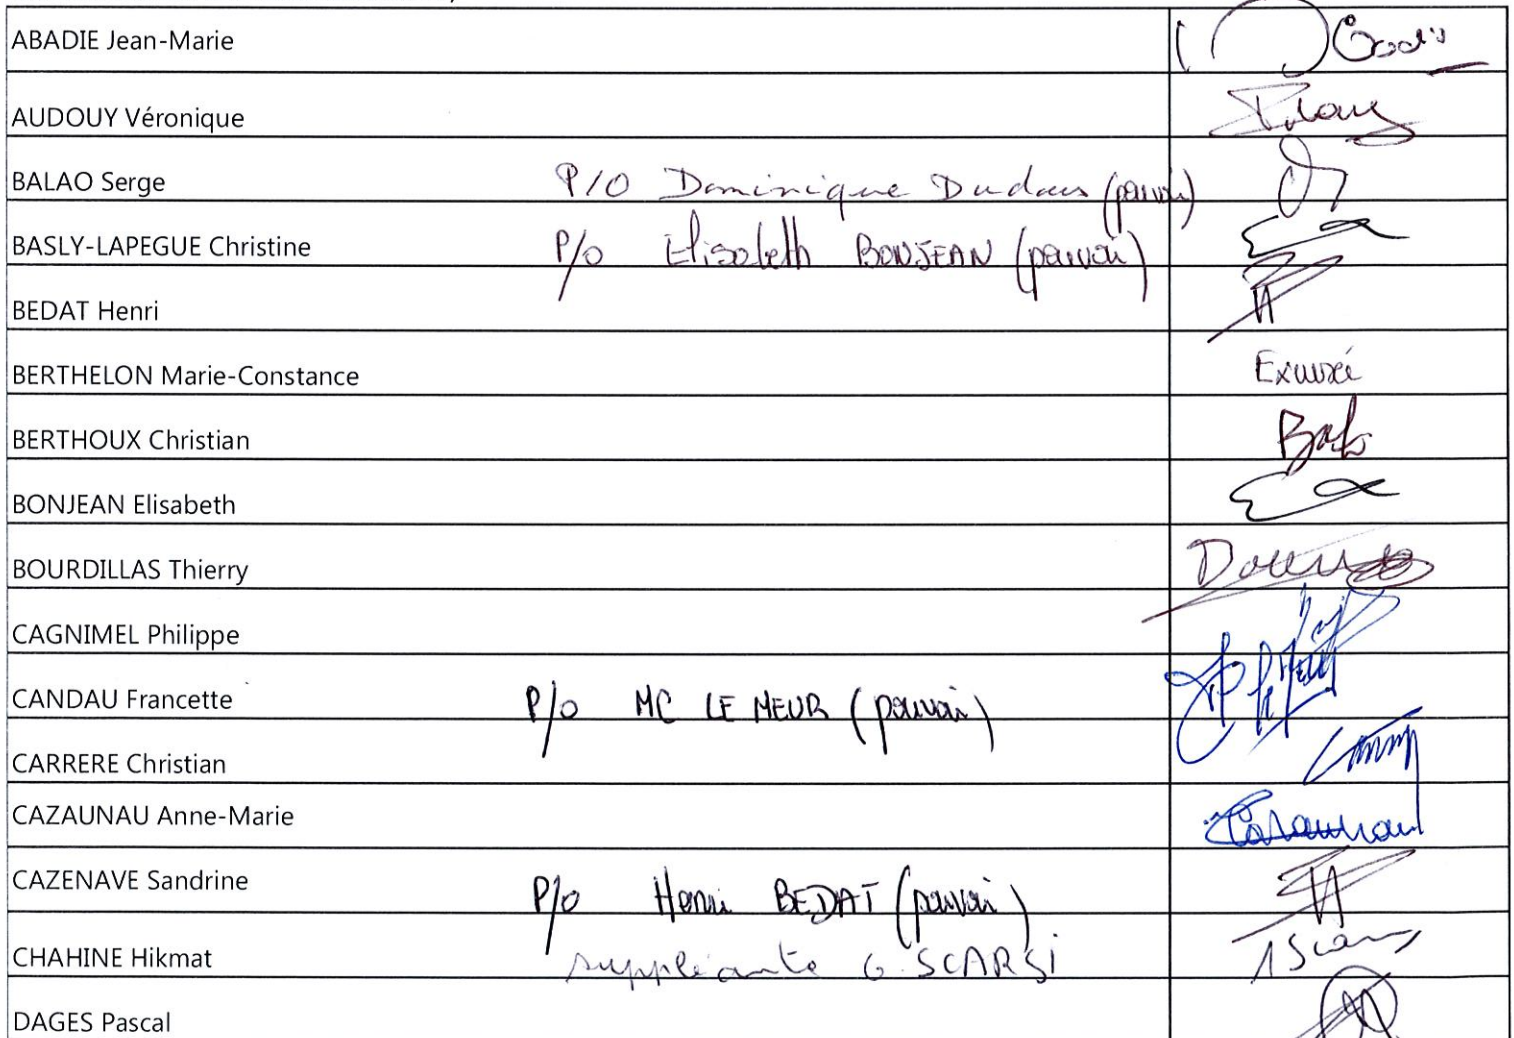 ABADIE Jean-Marie
AUDOUY Véronique
BALAO Serge P/O Dominique Dudous (pouvoir)
BASLY-LAPEGUE Christine P/o Elisabeth BONJEAN (pouvoir)
BEDAT Henri
BERTHELON Marie-Constance Excusée
BERTHOUX Christian
BONJEAN Elisabeth
BOURDILLAS Thierry
CAGNIMEL Philippe
CANDAU Francette P/o MC LE MEUR (pouvoir)
CARRERE Christian
CAZAUNAU Anne-Marie
CAZENAVE Sandrine P/o Henri BEDAT (pouvoir)
CHAHINE Hikmat suppléante G. SCARSI
DAGES Pascal